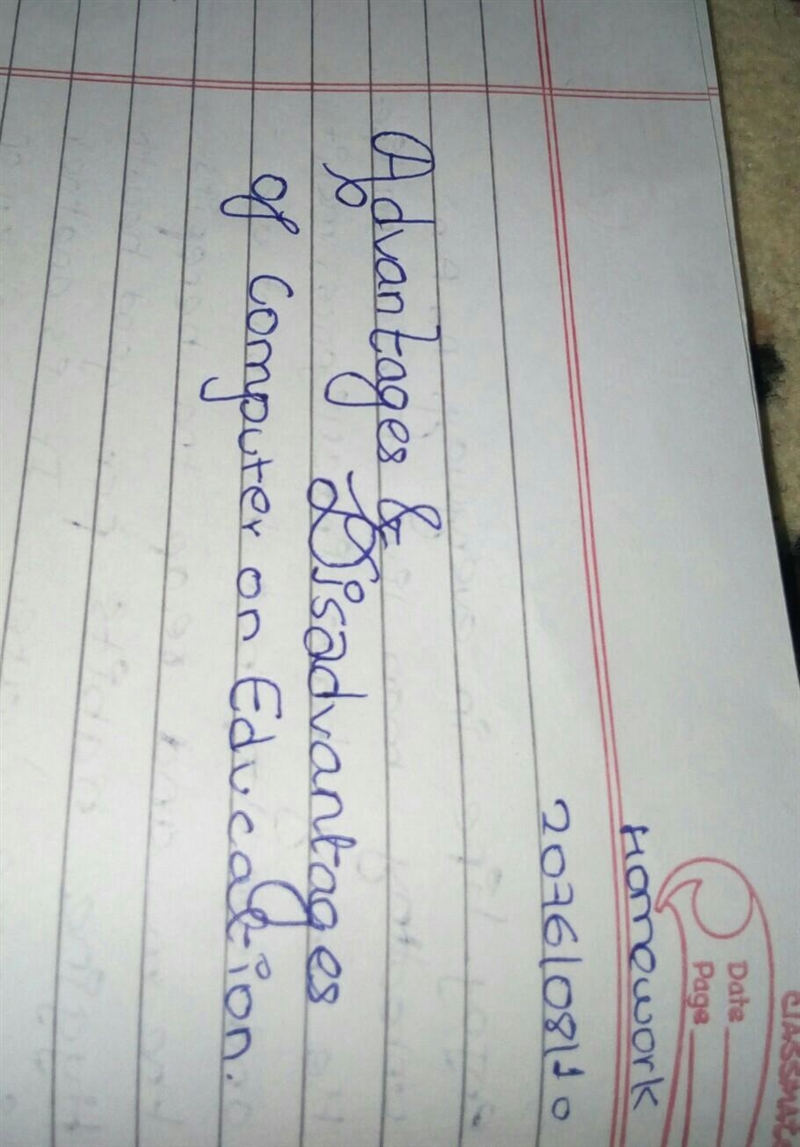 CLASSMATE
Date
Page
Homework
2076/08/10
Advantages & Disadvantages
of Computer on Education.